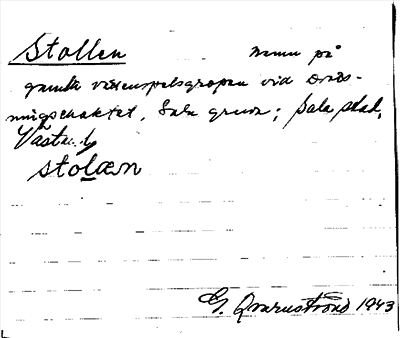 Stollen Namn på
gamla vissenspelsgropen vid Drott-
ningschaktet, Sala gruva; Sala stad,
Västm.
stolæn
G. Qvarnström 1943